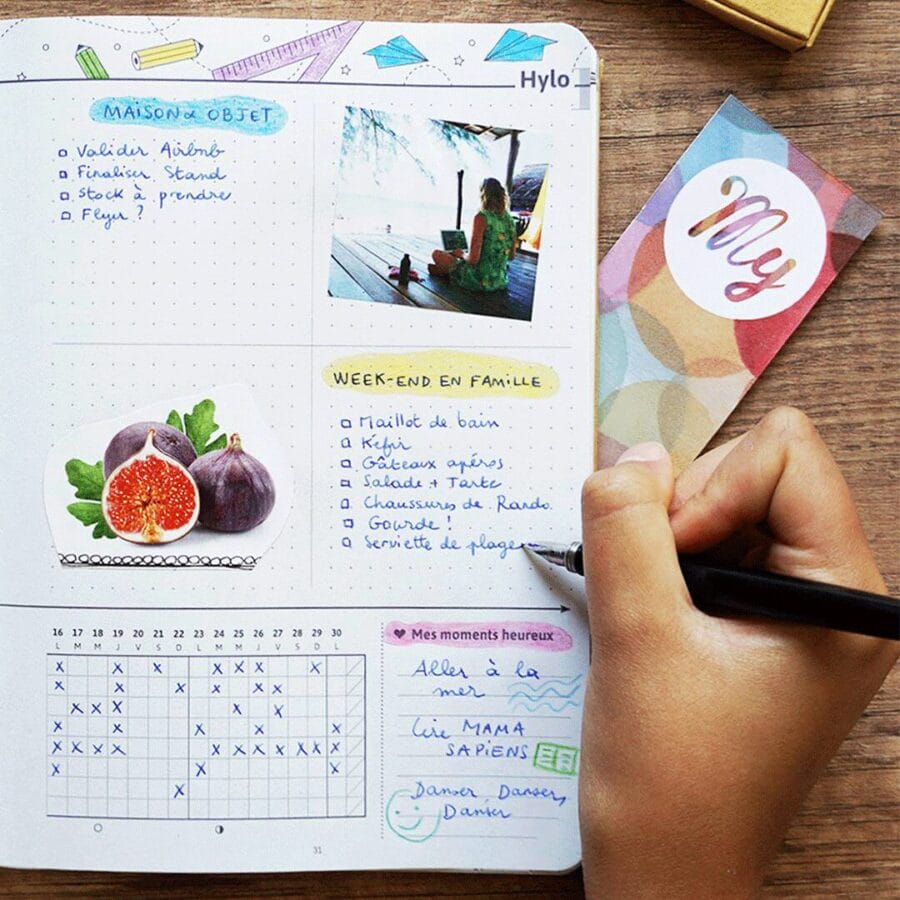 Hylo
MAISON & OBJET
Valider Airbnb
Finaliser Stand
Stock à prendre
Flyer ?
My
WEEK-END EN FAMILLE
Maillot de bain
Kéfir
Gâteaux apéros
Salade + Tarte
Chaussures de Rando
Gourde !
Serviette de plage
16 17 18 19 20 21 22 23 24 25 26 27 28 29 30
L M M J V S D L M M J V S D L
Mes moments heureux
Aller à la
mer
Lire MAMA
SAPIENS
Danser Danser,
Danser
31